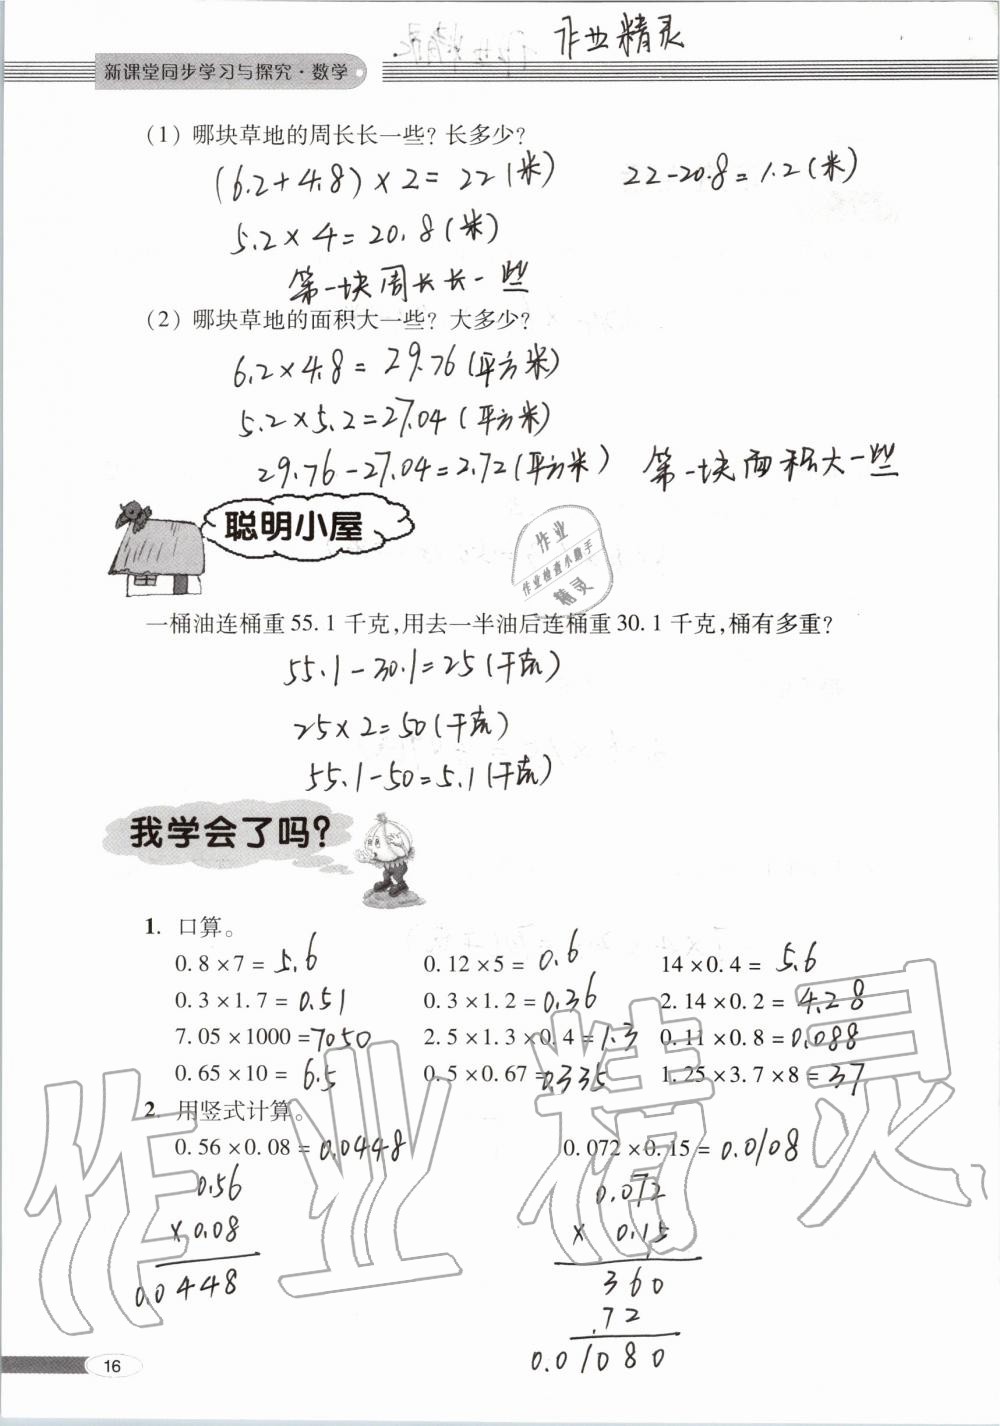 作业精灵
新课堂同步学习与探究·数学
(1) 哪块草地的周长长一些? 长多少?
(6.2+4.8)×2=22(米) 22-20.8=1.2(米)
5.2×4=20.8(米)
第一块周长长一些
(2) 哪块草地的面积大一些? 大多少?
6.2×4.8=29.76(平方米)
5.2×5.2=27.04(平方米)
29.76-27.04=2.72(平方米) 第一块面积大一些
聪明小屋
作业
作业检查小助手
精灵
一桶油连桶重 55.1 千克,用去一半油后连桶重 30.1 千克,桶有多重?
55.1-30.1=25(千克)
25×2=50(千克)
55.1-50=5.1(千克)
我学会了吗?
1. 口算。
0.8×7=5.6 0.12×5=0.6 14×0.4=5.6
0.3×1.7=0.51 0.3×1.2=0.36 2.14×0.2=4.28
7.05×1000=7050 2.5×1.3×0.4=1.3 0.11×0.8=0.088
0.65×10=6.5 0.5×0.67=0.335 1.25×3.7×8=37
2. 用竖式计算。
0.56×0.08=0.0448 0.072×0.15=0.0108
0.56 0.072
×0.08 × 0.15
0.0448 360
72
0.01080
作业精灵
16